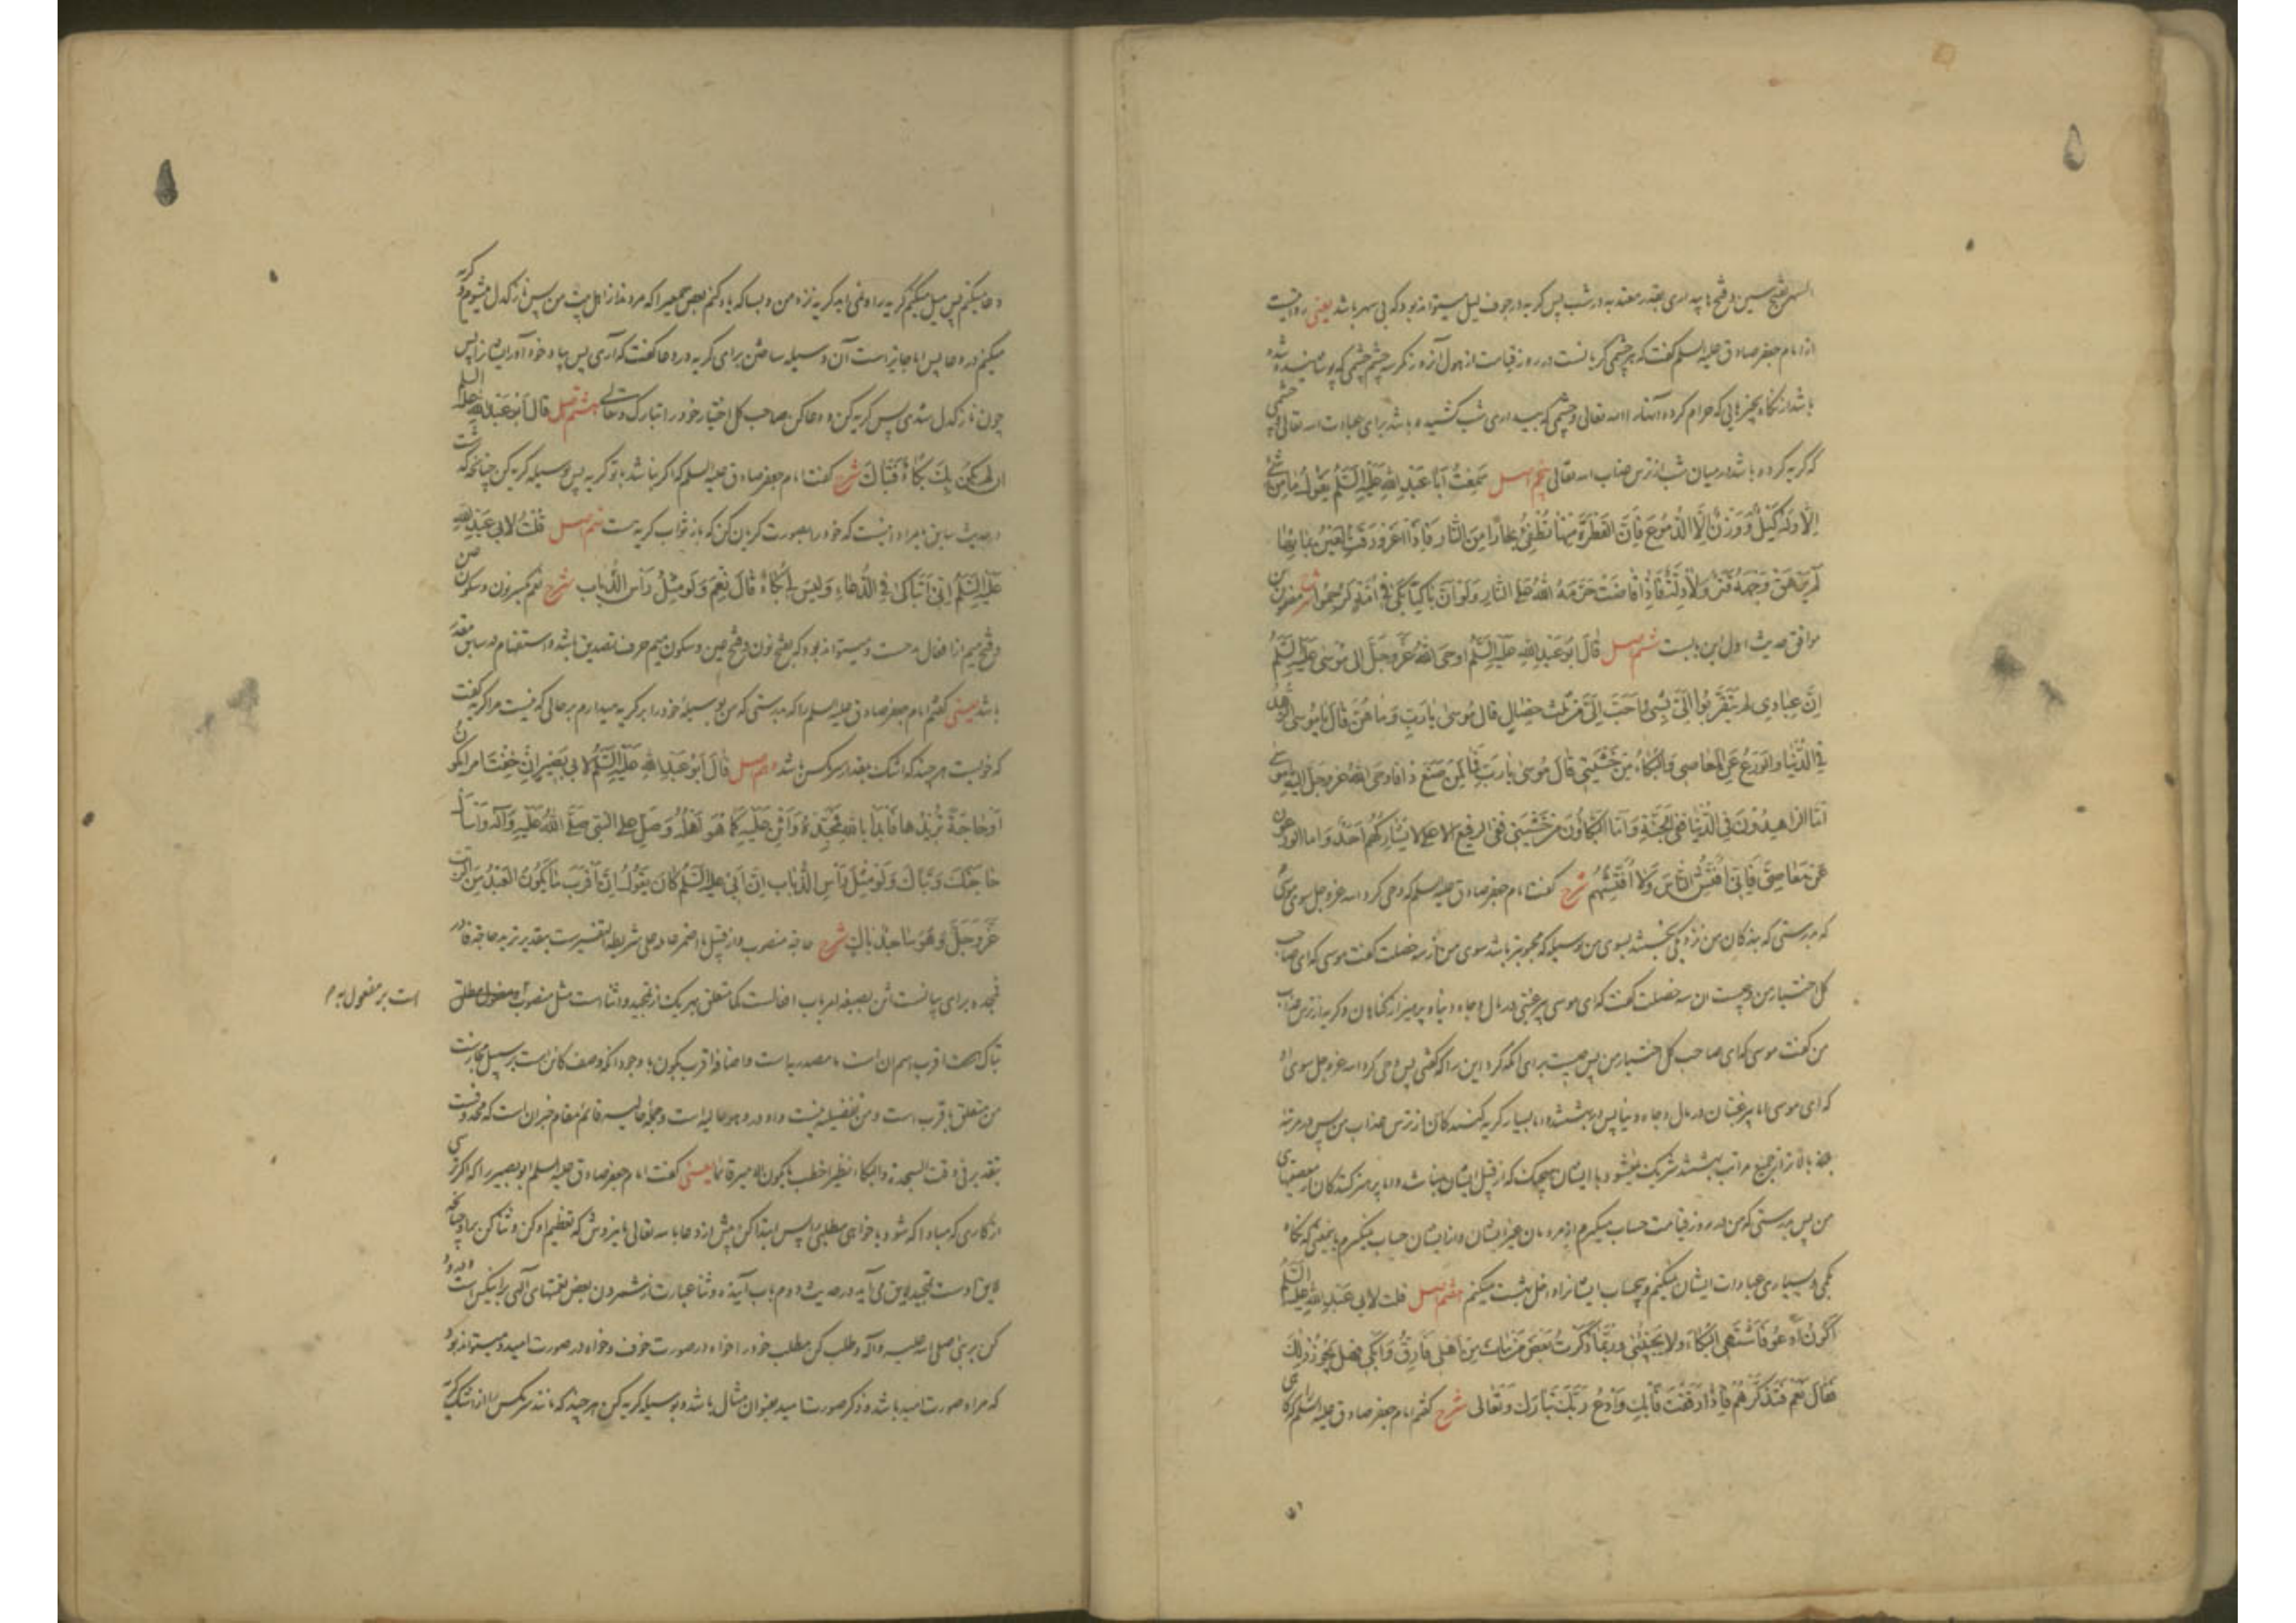 السهر بفتح سین و فتح ها بیداری بقدر معتد به در شب پس گریه در جوف لیل میتواند بود که بی سهر باشد یعنی روایت
از امام جعفر صادق علیه السلم گفت که هر چشمی گریانست در روز قیامت از هول آن روز مگر سه چشم چشمی که پوشانیده شده
باشد از نگاه بچیزهایی که حرام کرده آنها را الله تعالی و چشمی که بیداری شب کشیده باشد برای عبادت الله تعالی و چشمی
که گریه کرده باشد در میان شب از ترس عذاب الله تعالی پنجم اصل سَمِعْتُ أَبَا عَبْدِ اللهِ عَلَيْهِ السَّلَمُ يَقُولُ مَا مِنْ شَيْءٍ
اِلَّا وَلَهُ كَيْلٌ وَوَزْنٌ اِلَّا الدُّمُوعَ فَاِنَّ القَطْرَةَ مِنْهَا تُطْفِئُ بِحَارًا مِنَ النَّارِ فَاِذَا اغْرَوْرَقَتِ العَيْنُ بِمَائِهَا
لَمْ يَرْهَقْ وَجْهَهُ قَتَرٌ وَلَا ذِلَّةٌ فَاِذَا فَاضَتْ حَرَّمَهُ اللهُ عَلَى النَّارِ وَلَوْ اَنَّ بَاكِيًا بَكَى فِي اُمَّةٍ لَرُحِمُوا شرح
موافق حدیث اول این بابست ششم اصل قَالَ اَبُو عَبْدِ اللهِ عَلَيْهِ السَّلَمُ اَوْحَى اللهُ عَزَّ وَجَلَّ اِلَى مُوسَى عَلَيْهِ السَّلَمُ
اِنَّ عِبَادِي لَمْ يَتَقَرَّبُوا اِلَيَّ بِشَيْءٍ اَحَبَّ اِلَيَّ مِنْ ثَلَثِ خِصَالٍ قَالَ مُوسَى يَا رَبِّ وَمَا هُنَّ قَالَ يَا مُوسَى الزُّهْدُ
فِي الدُّنْيَا وَالوَرَعُ عَنِ المَعَاصِي وَالبُكَاءُ مِنْ خَشْيَتِي قَالَ مُوسَى يَا رَبِّ فَمَا لِمَنْ صَنَعَ ذَا فَاَوْحَى اللهُ عَزَّ وَجَلَّ اِلَيْهِ يَا مُوسَى
اَمَّا الزَّاهِدُونَ فِي الدُّنْيَا فَفِي الجَنَّةِ وَاَمَّا البَكَّاؤُنَ مِنْ خَشْيَتِي فَفِي الرَّفِيعِ الاَعْلَى لَا يُشَارِكُهُمْ اَحَدٌ وَاَمَّا الوَرِعُونَ
عَنْ مَعَاصِيَّ فَاِنِّي اُفَتِّشُ النَّاسَ وَلَا اُفَتِّشُهُمْ شرح گفت امام جعفر صادق علیه السلم که وحی کرد الله عز وجل سوی موسی
که بدرستی که بندگان من نزدیکی نجستند بسوی من بوسیله که محبوبتر باشد سوی من از سه خصلت گفت موسی که ای صاحب
کل اختیار من و چیست آن سه خصلت گفت که ای موسی بیرغبتی در مال و جاه دنیا و پرهیز از گناهان و گریه از ترس عذاب
من گفت موسی که ای صاحب کل اختیار من پس چیست برای آنکه کرد این را که گفتی پس وحی کرد الله عز وجل سوی او
که ای موسی اما بیرغبتان در مال و جاه دنیا پس در بهشتند و اما بسیار گریه کنندگان از ترس عذاب من پس در مرتبه
بلند بالاتر از جمیع مراتب بهشتند شریک نمیشود با ایشان هیچیک که از قبیل ایشان نباشد و اما پرهیز کنندگان از معصیتهای
من پس بدرستی که من در روز قیامت حساب میگیرم از مردمان غیر ایشان و از ایشان حساب نمیگیرم باینمعنی که نگاه
بکمی و بسیاری عبادات ایشان نمیکنم و بیحساب ایشانرا داخل بهشت میکنم هفتم اصل قلت لابي عَبْدِ اللهِ عليه السَّلَمُ
اَكُونُ اَدْعُو فَاَشْتَهِي البُكَاءَ وَلَا يَجِيئُنِي وَرُبَّمَا ذَكَرْتُ بَعْضَ مَنْ مَاتَ مِنْ اَهْلِي فَاَرِقُّ وَاَبْكِي فَهَلْ يَجُوزُ ذَلِكَ
فَقَالَ نَعَمْ فَتَذَكَّرْهُمْ فَاِذَا رَقَقْتَ فَابْكِ وَادْعُ رَبَّكَ تَبَارَكَ وَتَعَالَى شرح گفتم امام جعفر صادق علیه السلم را که گاهی
دعا میکنم پس میل میکنم گریه را و نمی آید گریه نزد من و بسا که یاد کنم بعض جمعی را که مرده اند از اهل بیت من پس نازکدل میشوم و گریه
میکنم در دعا پس آیا جایز است آن وسیله ساختن برای گریه در دعا گفت که آری پس بیاد خود آور ایشانرا پس
چون نازکدل شدی پس گریه کن و دعا کن صاحب کل اختیار خود را تبارک وتعالی هشتم اصل قَالَ اَبُو عَبْدِ اللهِ عليه السلم
اِنْ لَمْ يَكُنْ بِكَ بُكَاءٌ فَتَبَاكَ شرح گفت امام جعفر صادق علیه السلم که اگر نباشد با تو گریه پس بوسیله گریه کن چنانچه گذشت
در حدیث سابق یا مراد اینست که خود را بصورت گریان کن که باز ثواب گریه هست نهم اصل قُلْتُ لابي عَبْدِ اللهِ
عَلَيْهِ السَّلَمُ اِنِّي اَتَبَاكَى فِي الدُّعَاءِ وَلَيْسَ لِي بُكَاءٌ قَالَ نِعِمَّ وَلَوْ مِثْلُ رَأسِ الذُّبَابِ شرح نعم بکسر نون و سکون عین
و فتح میم از افعال مدحست و میتواند بود که بفتح نون و فتح عین و سکون میم حرف تصدیق باشد و استفهام در سابق مقدر
باشد یعنی گفتم امام جعفر صادق علیه السلم را که بدرستی که من بوسیله خود را بر گریه میدارم بر حالی که نیست مرا گریه گفت
که خوبست هر چند که اشک بمقدار سر مگس باشد دهم اصل قَالَ اَبُو عَبْدِ اللهِ عَلَيْهِ السَّلَمُ لابي بَصِيرٍ اِنْ خِفْتَ اَمْرًا يَكُونُ
اَوْ حَاجَةً تُرِيدُهَا فَابْدَأْ بِاللهِ فَمَجِّدْهُ وَاثْنِ عَلَيْهِ كَمَا هُوَ اَهْلُهُ وَصَلِّ عَلَى النَّبِيِّ صَلَّى اللهُ عَلَيْهِ وَآلِهِ وَاسْأَلْ
حَاجَتَكَ وَتَبَاكَ وَلَوْ مِثْلَ رَأسِ الذُّبَابِ اِنَّ اَبِي عَلَيْهِ السَّلَمُ كَانَ يَقُولُ اِنَّ اَقْرَبَ مَا يَكُونُ العَبْدُ مِنَ الرَّبِّ
عَزَّ وَجَلَّ وَهُوَ سَاجِدٌ بَاكٍ شرح حاجة منصوب و از قبیل ما اضمر عامله علی شریطة التفسیرست بتقدیر ترید حاجة فا در
فمجده برای بیانست اثن بصیغه امر باب افعالست کما متعلق بهر یک از تمجید و اثنا است مثل منصوب است بر مفعول به
تباک است اقرب اسم ان است ما مصدریه است و اضافه اقرب بکون با وجود آنکه وصف کائن است بر سبیل مجازست
من متعلق باقرب است و من تفضیلیه نیست واو در وهو حالیه است و جمله حالیه قائم مقام خبر ان است که محذوفست
بتقدیر فی وقت السجدة والبکاء نظیر اخطب ما یکون الامیر قائما یعنی گفت امام جعفر صادق علیه السلم ابو بصیر را که اگر ترسی
از کاری که مبادا که شود یا خواهی مطلبی را پس ابتدا کن پیش از دعا بالله تعالی باینروش که تعظیم او کن و ثنا کن بر او چنانچه
لایق اوست تمجید لایق می آید در حدیث دوم باب آینده و ثنا عبارت از شمردن بعض نعمتهای الهی بر اینکس است و درود
کن بر نبی صلی الله علیه وآله و طلب کن مطلب خود را خواه در صورت خوف و خواه در صورت امید و میتواند بود
که مراد صورت امید باشد و ذکر صورت امید بعنوان مثال باشد و بوسیله گریه کن هر چند که مانند سر مگس از اشک